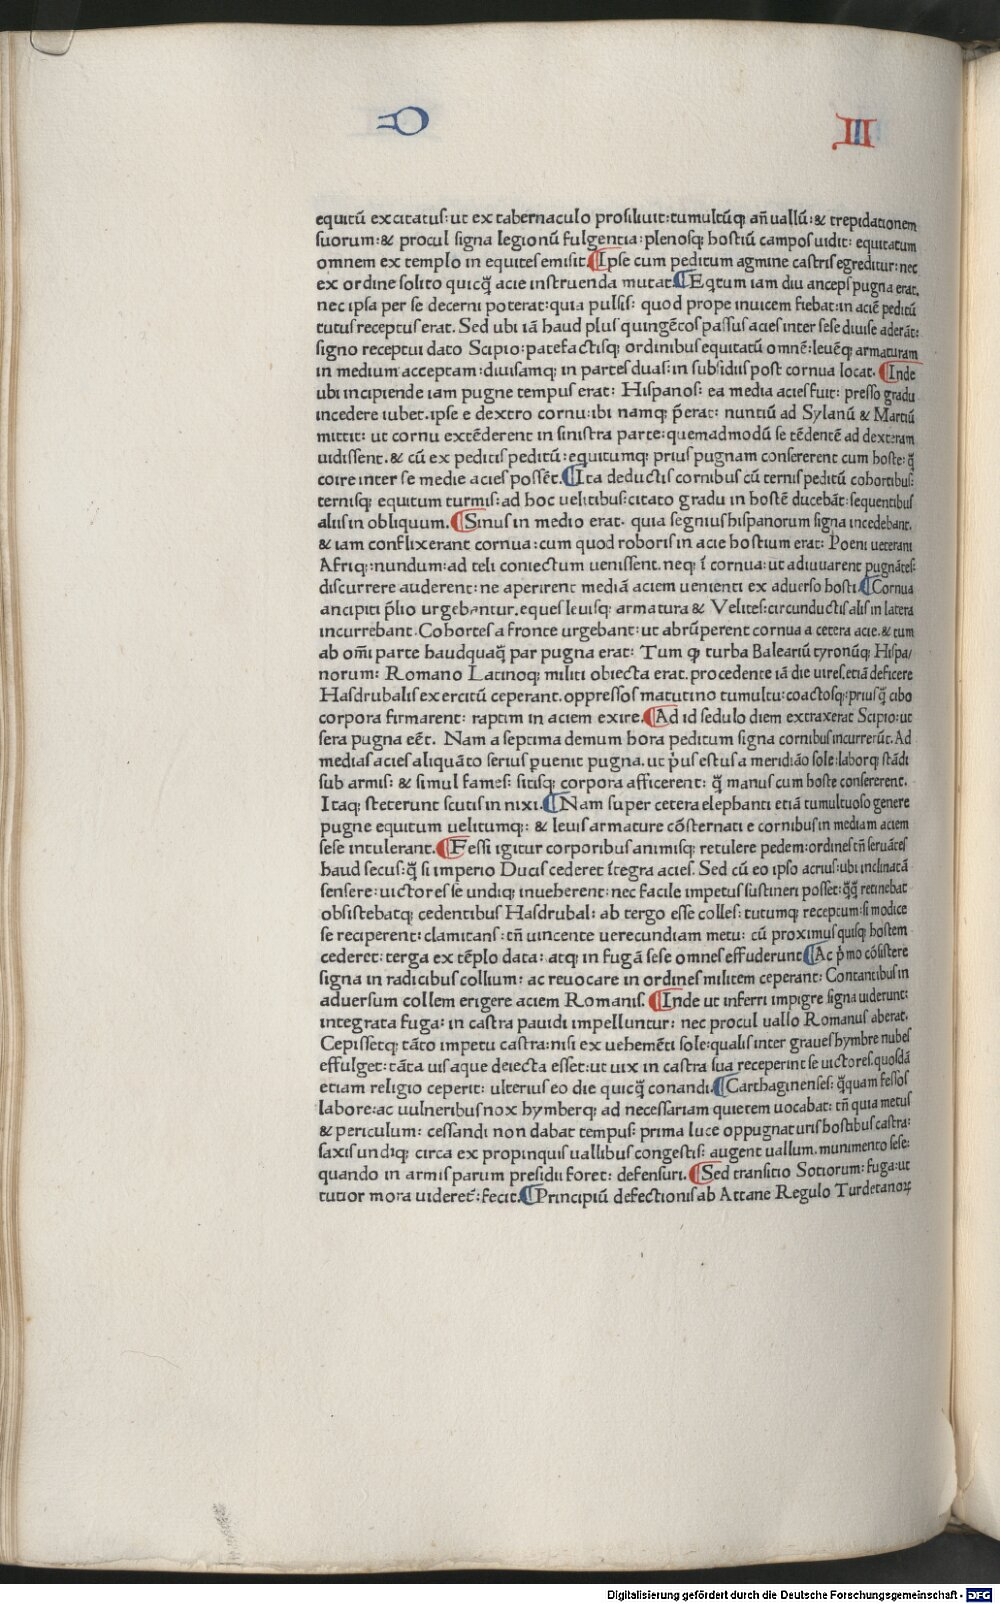 D III
equitū excitatus: ut ex tabernaculo prosiliuit: tumultūq; añ uallū: & trepidationem
suorum: & procul signa legionū fulgentia: plenosq; hostiū campos uidit: equitatum
omnem ex templo in equites emisit. ¶Ipse cum peditum agmine castris egreditur: nec
ex ordine solito quicq̄ acie instruenda mutat ¶Eqtum iam diu anceps pugna erat.
nec ipsa per se decerni poterat: quia pulsis: quod prope inuicem fiebat: in aciē peditū
tutus receptus erat. Sed ubi iā haud plus quingētos passus acies inter sese diuise aderāt:
signo receptui dato Scipio: patefactisq; ordinibus equitatū omnē: leuēq; armaturam
in medium acceptam: diuisamq; in partes duas: in subsidiis post cornua locat. ¶Inde
ubi incipiende iam pugne tempus erat: Hispanos: ea media acies fuit: presso gradu
incedere iubet. ipse e dextro cornu: ibi namq; p̄erat: nuntiū ad Sylanū & Martiū
mittit: ut cornu extēderent in sinistra parte: quemadmodū se tēdentē ad dexteram
uidissent. & cū ex peditis peditū: equitumq; prius pugnam consererent cum hoste: q̄
coire inter se medie acies possēt. ¶Ita deductis cornibus cū ternis peditū cohortibus:
ternisq; equitum turmis: ad hoc uelitibus: citato gradu in hostē ducebāt: sequentibus
aliis in obliquum. ¶Sinus in medio erat. quia segnius hispanorum signa incedebant.
& iam conflixerant cornua: cum quod roboris in acie hostium erat: Poeni ueterani
Afriq;: nundum: ad teli coniectum uenissent. neq; ī cornua: ut adiuuarent pugnātes:
discurrere auderent: ne aperirent mediā aciem uenienti ex aduerso hosti ¶Cornua
ancipiti p̄lio urgebantur. eques leuisq; armatura & Velites: circunductis alis in latera
incurrebant. Cohortes a fronte urgebant: ut abrūperent cornua a cetera acie. & tum
ab om̄i parte haudquaq̄ par pugna erat: Tum ꝙ turba Baleariū tyronūq; Hispa/
norum: Romano Latinoq; militi obiecta erat. procedente iā die uires. etiā deficere
Hasdrubalis exercitū ceperant. oppressos matutino tumultu: coactosq;: priusq̄ cibo
corpora firmarent: raptim in aciem exire. ¶Ad id sedulo diem extraxerat Scipio: ut
sera pugna eēt. Nam a septima demum hora peditum signa cornibus incurrerūt. Ad
medias acies aliquāto serius puenit pugna. ut p̄us estus a meridiāo sole: laborq; stādi
sub armis: & simul fames: sitisq; corpora afficerent: q̄ manus cum hoste consererent.
Itaq; steterunt scutis in nixi. ¶Nam super cetera elephanti etiā tumultuoso genere
pugne equitum uelitumq;: & leuis armature cōsternati e cornibus in mediam aciem
sese intulerant. ¶Fessi igitur corporibus animisq; retulere pedem: ordines tñ seruātes
haud secus: q̄ si imperio Ducis cederet ītegra acies. Sed cū eo ipso acrius: ubi inclinatā
sensere: uictores se undiq; inueherent: nec facile impetus sustineri posset: q̄q̄ retinebat
obsistebatq; cedentibus Hasdrubal: ab tergo esse colles: tutumq; receptum: si modice
se reciperent: clamitans: tñ uincente uerecundiam metu: cū proximus quisq; hostem
cederet: terga ex tēplo data: atq; in fugā sese omnes effuderunt ¶Ac p̄mo cōsistere
signa in radicibus collium: ac reuocare in ordines militem ceperant: Contantibus in
aduersum collem erigere aciem Romanis. ¶Inde ut inferri impigre signa uiderunt:
integrata fuga: in castra pauidi impelluntur: nec procul uallo Romanus aberat.
Cepissetq; tāto impetu castra: nisi ex uehemēti sole: qualis inter graues hymbre nubes
effulget: tāta uis aque deiecta esset: ut uix in castra sua receperint se uictores. quosdā
etiam religio ceperit: ulterius eo die quicq̄ conandi. ¶Carthaginenses: q̄quam fessos
labore: ac uulneribus nox hymberq; ad necessariam quietem uocabat: tñ quia metus
& periculum: cessandi non dabat tempus: prima luce oppugnaturis hostibus castra:
saxis undiq; circa ex propinquis uallibus congestis: augent uallum. munimento sese:
quando in armis parum presidii foret: defensuri. ¶Sed transitio Sotiorum: fuga: ut
tutior mora uideret̃: fecit. ¶Principiū defectionis ab Attane Regulo Turdetanoꝝ
Digitalisierung gefördert durch die Deutsche Forschungsgemeinschaft - DFG